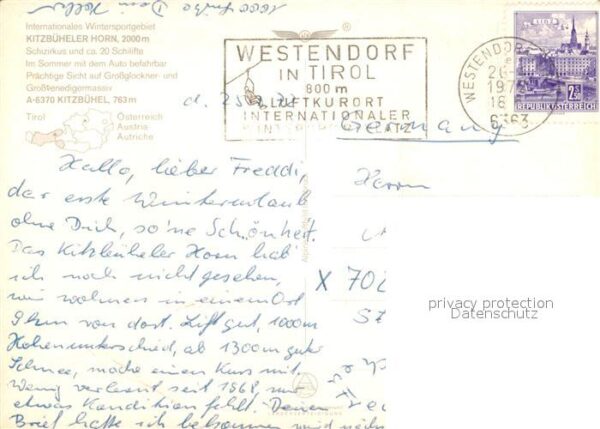 Internationales Wintersportgebiet
KITZBÜHELER HORN, 2000 m
Schizirkus und ca. 20 Schilifte
Im Sommer mit dem Auto befahrbar
Prächtige Sicht auf Großglockner- und
Großvenedigermassiv
A-6370 KITZBÜHEL, 763 m
Tirol
Österreich
Austria
Autriche
WESTENDORF
IN TIROL
800 m
LUFTKURORT
INTERNATIONALER
WESTENDORF
6363
LINZ
2.50
REPUBLIK ÖSTERREICH
d. 25.
Germany
Hallo, lieber Freddi,
der erste Winterurlaub
ohne Dich, so'ne Schönheit.
Das Kitzbüheler Horn hab'
ich noch nicht gesehen,
wir wohnen in einem Ort
von dort. Lift gut, 1000m
Höhenunterschied, ab 1300m guter
Schnee, mache einen Kurs mit,
Wenig verlernt seit 1968, nur
etwas Kondition fehlt. Deinen
Brief hatte ich bekommen
Herrn
X 702
privacy protection
Datenschutz